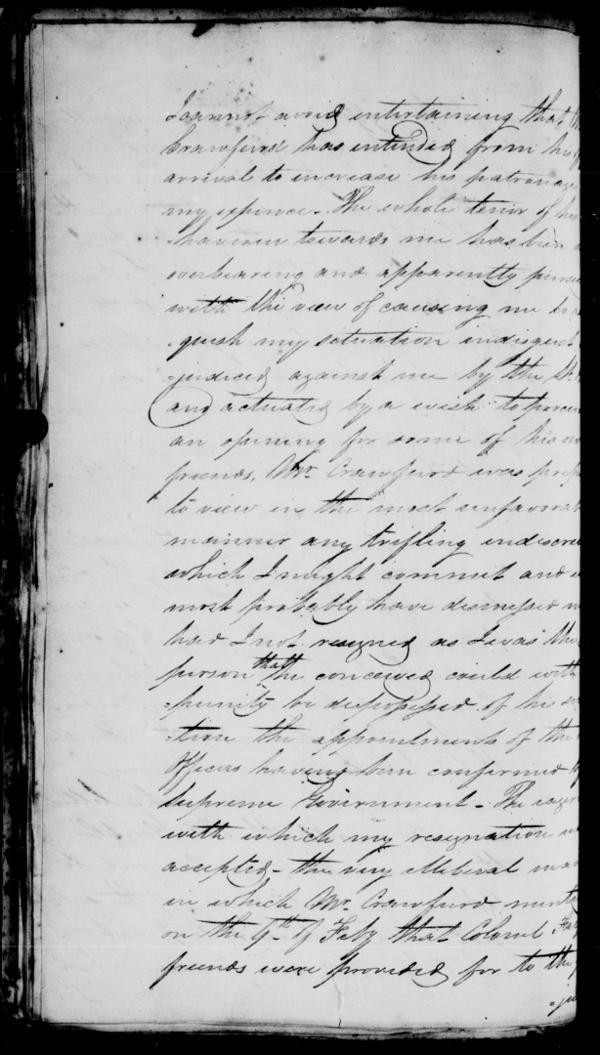 I cannot avoid entertaining that
Crawfurd has intended from his
arrival to increase his patronage
my expence. The whole tenor of his
haviour towards me has been
overbearing and apparently
with the view of causing me to
quish my situation indisgust
judiced against me by the
and actuated by a wish to
an opening for some of his
friends, Mr. Crawfurd was
to view in the most
manner any trifling
which I might commit and
most probably have dismissed
had I not resigned as I was the
person that he conceived could with
punity be dispossessed of his
tion the appointments of the
Officers having been confirmed
Supreme Government - The
with which my resignation
accepted - the very illiberal
in which Mr. Crawfurd
on the 9th of Feby that Colonel
friends were provided for to the